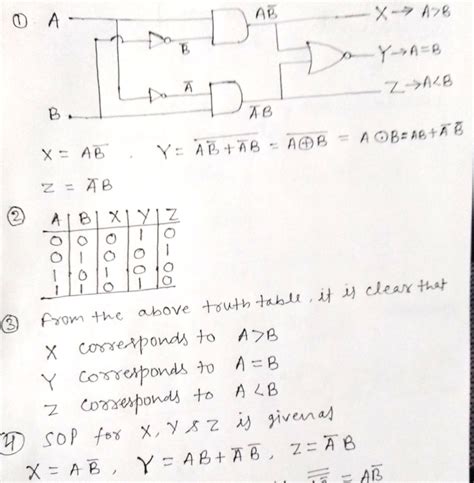 ① A AB̅ X → A>B
B̅ Y → A=B
A̅ Z → A<B
B A̅B
X = AB̅ . Y = \overline{AB̅ + A̅B} = \overline{A⊕B} = A⊙B = AB + A̅ B̅
Z = A̅B
② A B X Y Z
0 0 0 1 0
0 1 0 0 1
1 0 1 0 0
1 1 0 1 0
③ From the above truth table, it is clear that
X corresponds to A>B
Y corresponds to A=B
Z corresponds to A<B
④ SOP for X, Y & Z is given as
X = AB̅ , Y = AB + A̅ B̅ , Z = A̅ B
= AB̅